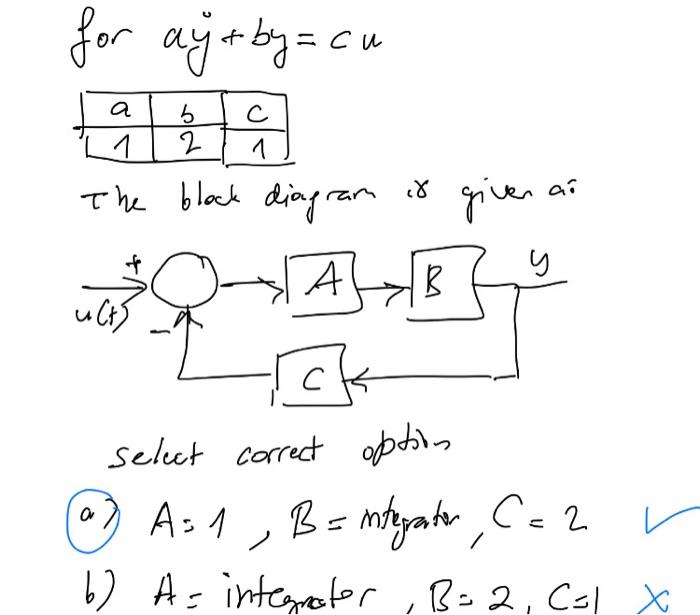 for aẏ + by = c u
a b c
1 2 1
The block diagram is given as
+ A B y
u(t) -
C
select correct option
a) A = 1 , B = integrator , C = 2 ✓
b) A = integrator , B = 2 , C = 1 x